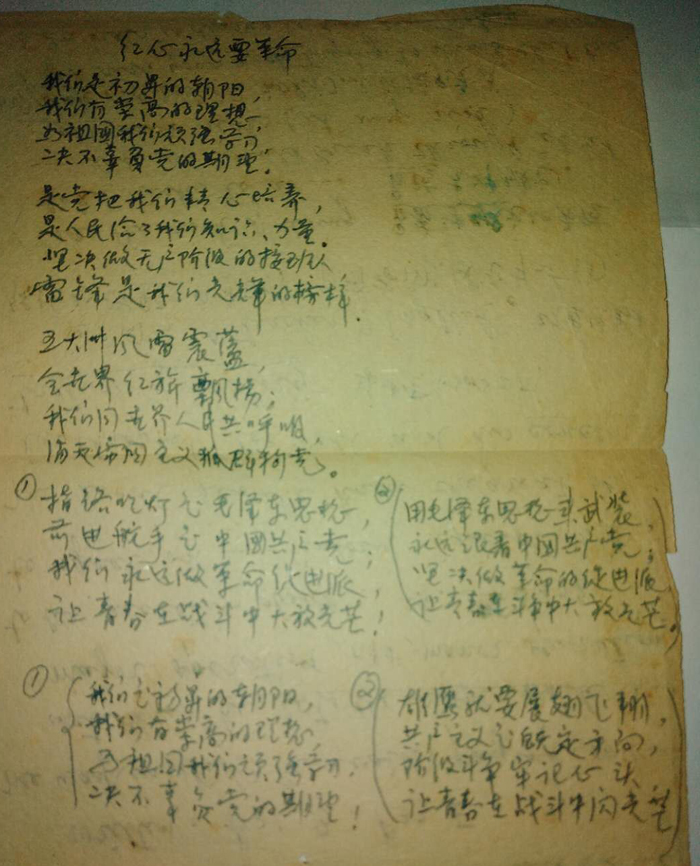 红心永远要革命
我们是初昇的朝阳,
我们有崇高的理想,
为祖国我们顽强学习,
决不辜负党的期望!
是党把我们精心培养,
是人民给了我们知识、力量。
坚决做无产阶级的接班人
雷锋是我们光辉的榜样.
五大洲风雷震荡,
全世界红旗飘扬;
我们同世界人民共呼吸,
消灭帝国主义狐群狗党。
① 指路明灯是毛泽东思想,
前进航手是中国共产党;
我们永远做革命促进派,
让青春在战斗中大放光芒!
② 用毛泽东思想来武装,
永远跟着中国共产党;
坚决做革命的促进派,
让青春在斗争中大放光芒。
① 我们是初昇的朝阳,
我们有崇高的理想,
为祖国我们顽强学习,
决不辜负党的期望!
② 雄鹰就要展翅飞翔,
共产主义是既定方向,
阶级斗争牢记心头
让青春在战斗中闪光芒